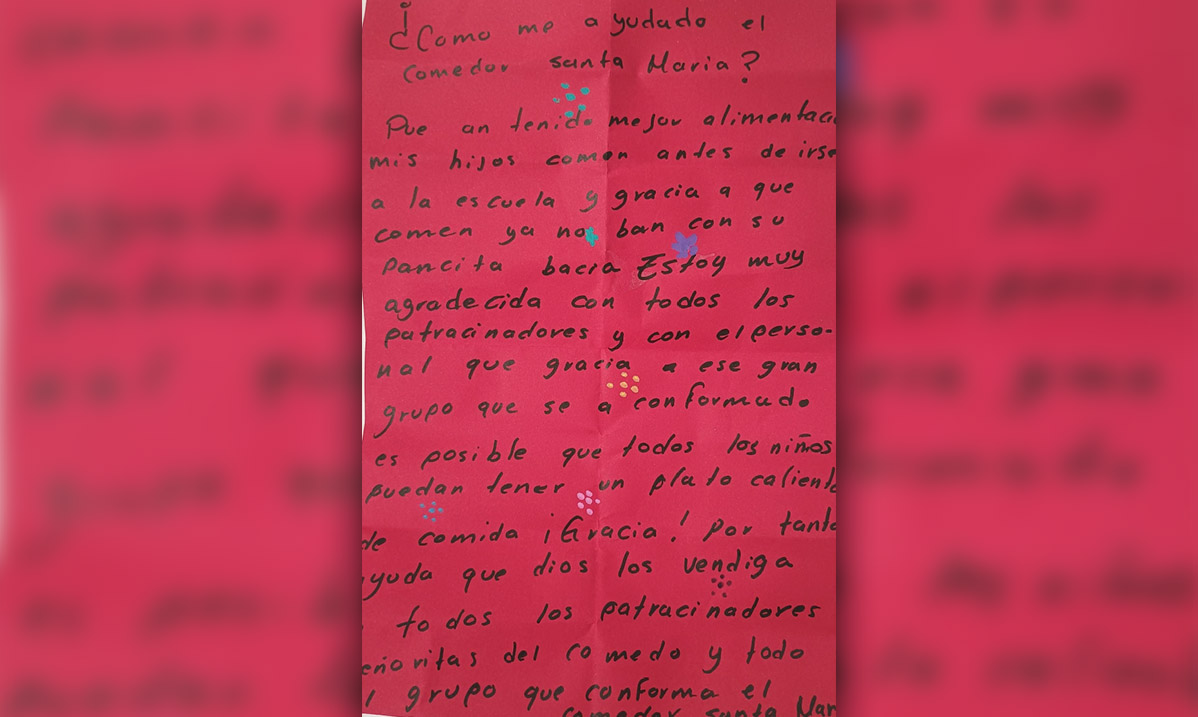 ¿Como me ayudado el
comedor santa Maria?
Pue an tenido mejor alimentac
mis hijos comen antes de irse
a la escuela y gracia a que
comen ya no ban con su
pancita bacia Estoy muy
agradecida con todos los
patracinadores y con el perso-
nal que gracia a ese gran
grupo que se a conformado
es posible que todos los niños
puedan tener un plato caliente
de comida ¡Gracia! por tanta
yuda que dios los vendiga
todos los patracinadores
eñoritas del comedo y todo
l grupo que conforma el
comedor santa Mar